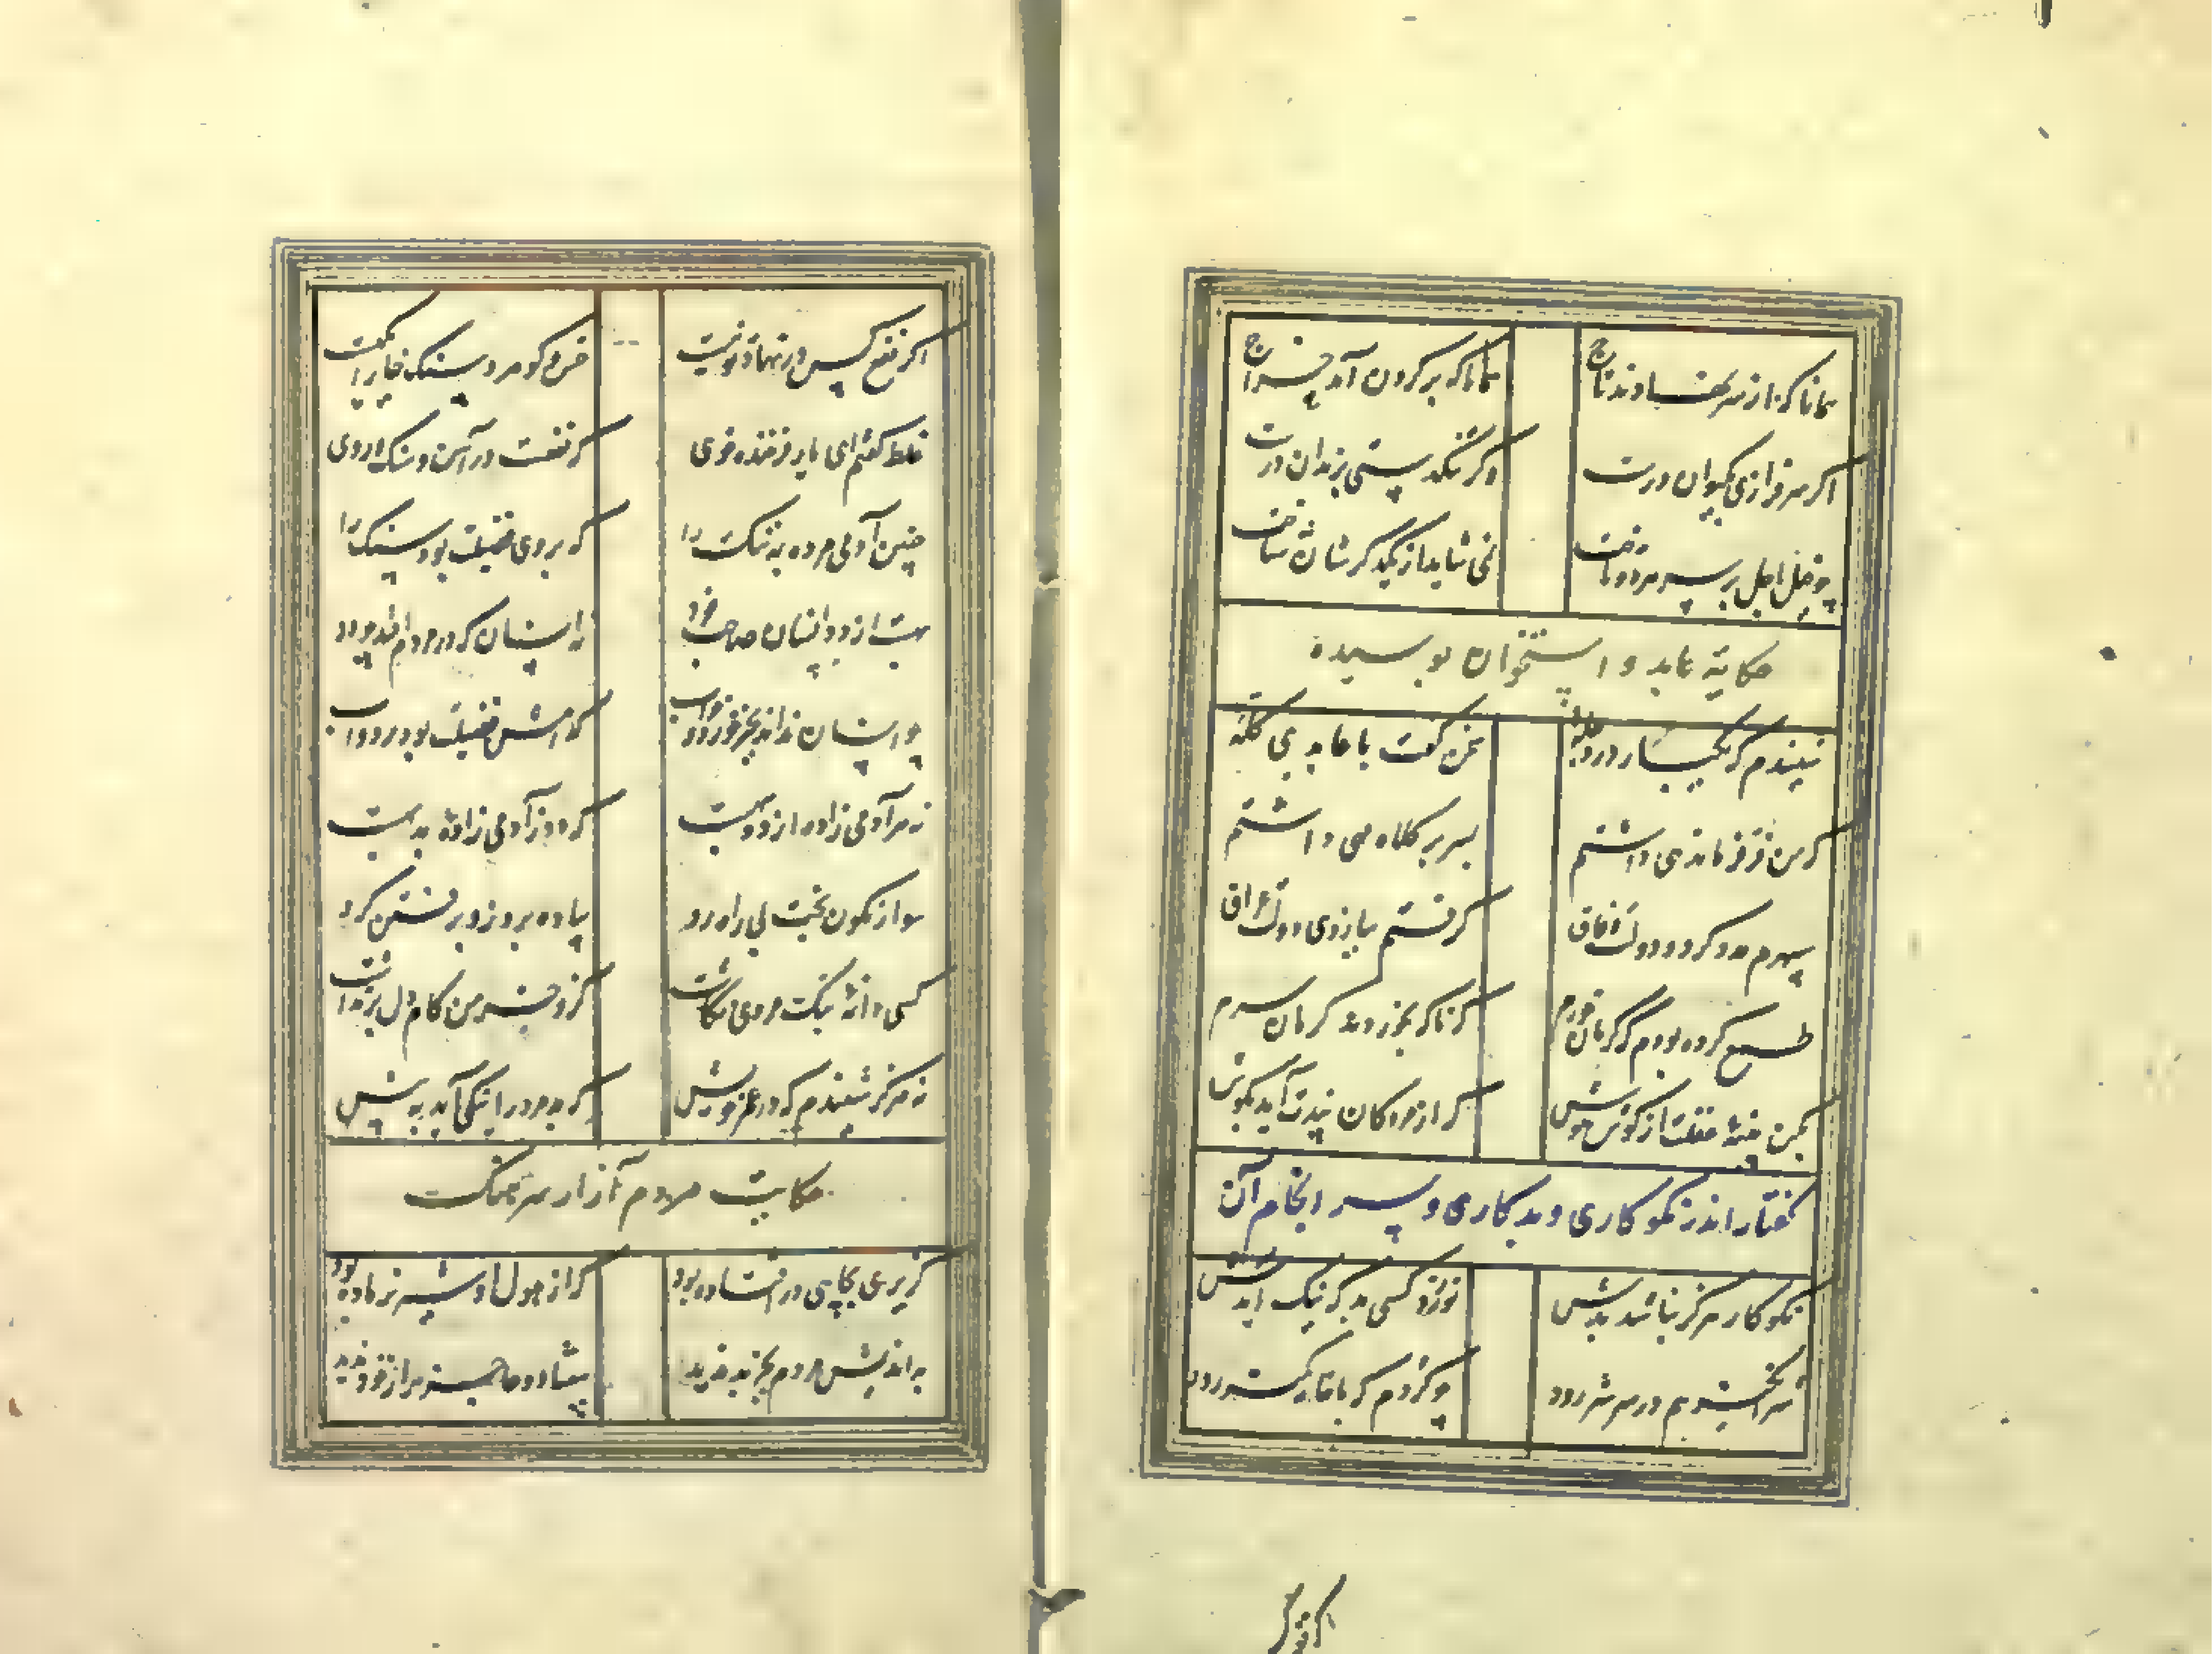 همانا که از سر نهادند تاج همانا که بر گردن آمد خراج
اگر سرفرازی بکیوان درست وگر تنگدستی بزندان درست
چو خیل اجل بر سر مرد و تاخت نمی شاید از یکدگرشان شناخت
حکایة عابد و استخوان بوسیده
شنیدم که یکبار در دجلهٔ سخن گفت با عابدی کلهٔ
که من فر فرماندهی داشتم بسر بر کلاه مهی داشتم
سپهرم مدد کرد و دولت وفاق گرفتم ببازوی دولت عراق
طمع کرده بودم که کرمان خورم که ناگه بخوردند کرمان سرم
بکن پنبهٔ غفلت از گوش هوش که از مردگان پندت آید بگوش
گفتار اندر نکو کاری و بد کاری و سر انجام آن
نکو کار هرگز نباشد بدش نورزد کسی بد که نیک ایدش
شر انگیز هم در سر شر رود چو کژدم که با خانه کمتر رود
اگر نفع کس در نهاد تو نیست چنین گوهر و سنگ خارا یکیست
غلط گفتم ای یار فرخنده خوی که نفعست در آهن و سنگ و روی
چنین آدمی مرده به ننگ را که بر وی فضیلت بود سنگ را
بهست از دد انسان صاحب خرد نه انسان که در مردم افتد چو دد
چو انسان نداند بجز خورد و خواب کدامش فضیلت بود بر دواب
نه هر آدمی زاده از دد بهست که دد ز آدمی زادهٔ بد بهست
سوار نگون بخت بی راه رو پیاده برد زو برفتن گرو
کسی دانهٔ نیک مردی نکاشت کزو خرمن کام دل برنداشت
نه هرگز شنیدم که در عمر خویش که بد مرد را نیکی آید به پیش
حکایت مردم آزار سرهنگ
گزیری بچاهی در افتاده بود که از هول او شیر نر ماده بود
بد اندیش مردم بجز بد ندید بیفتاد و عاجزتر از خود ندید